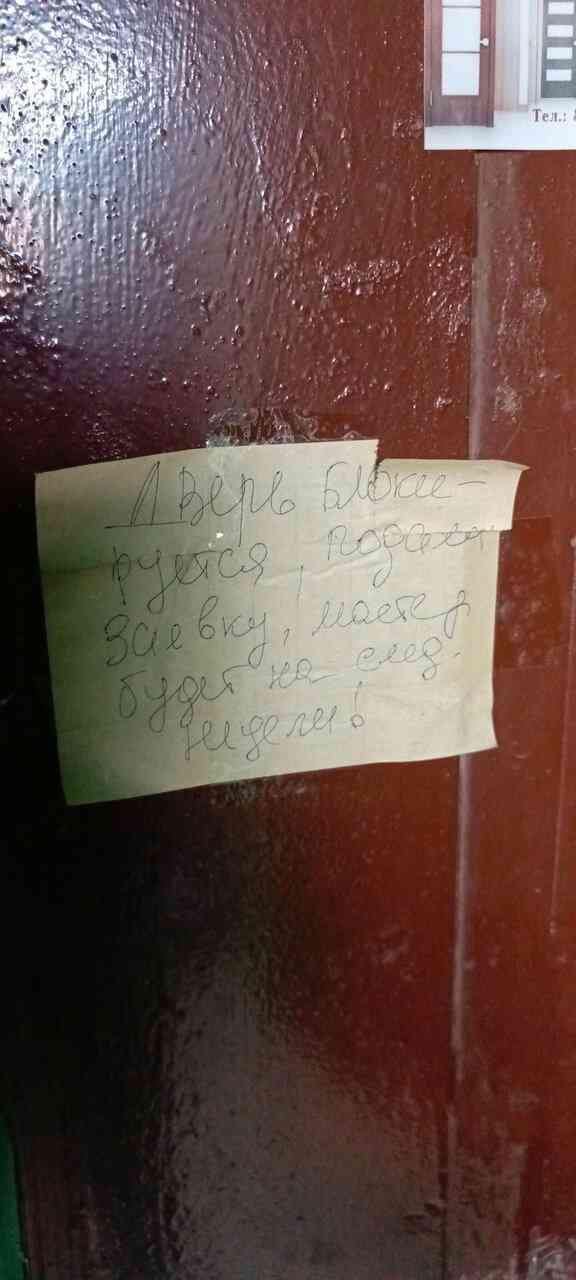 Тел.: 8
Дверь блоки-
руется, подала
заявку, мастер
будет на след.
недели!